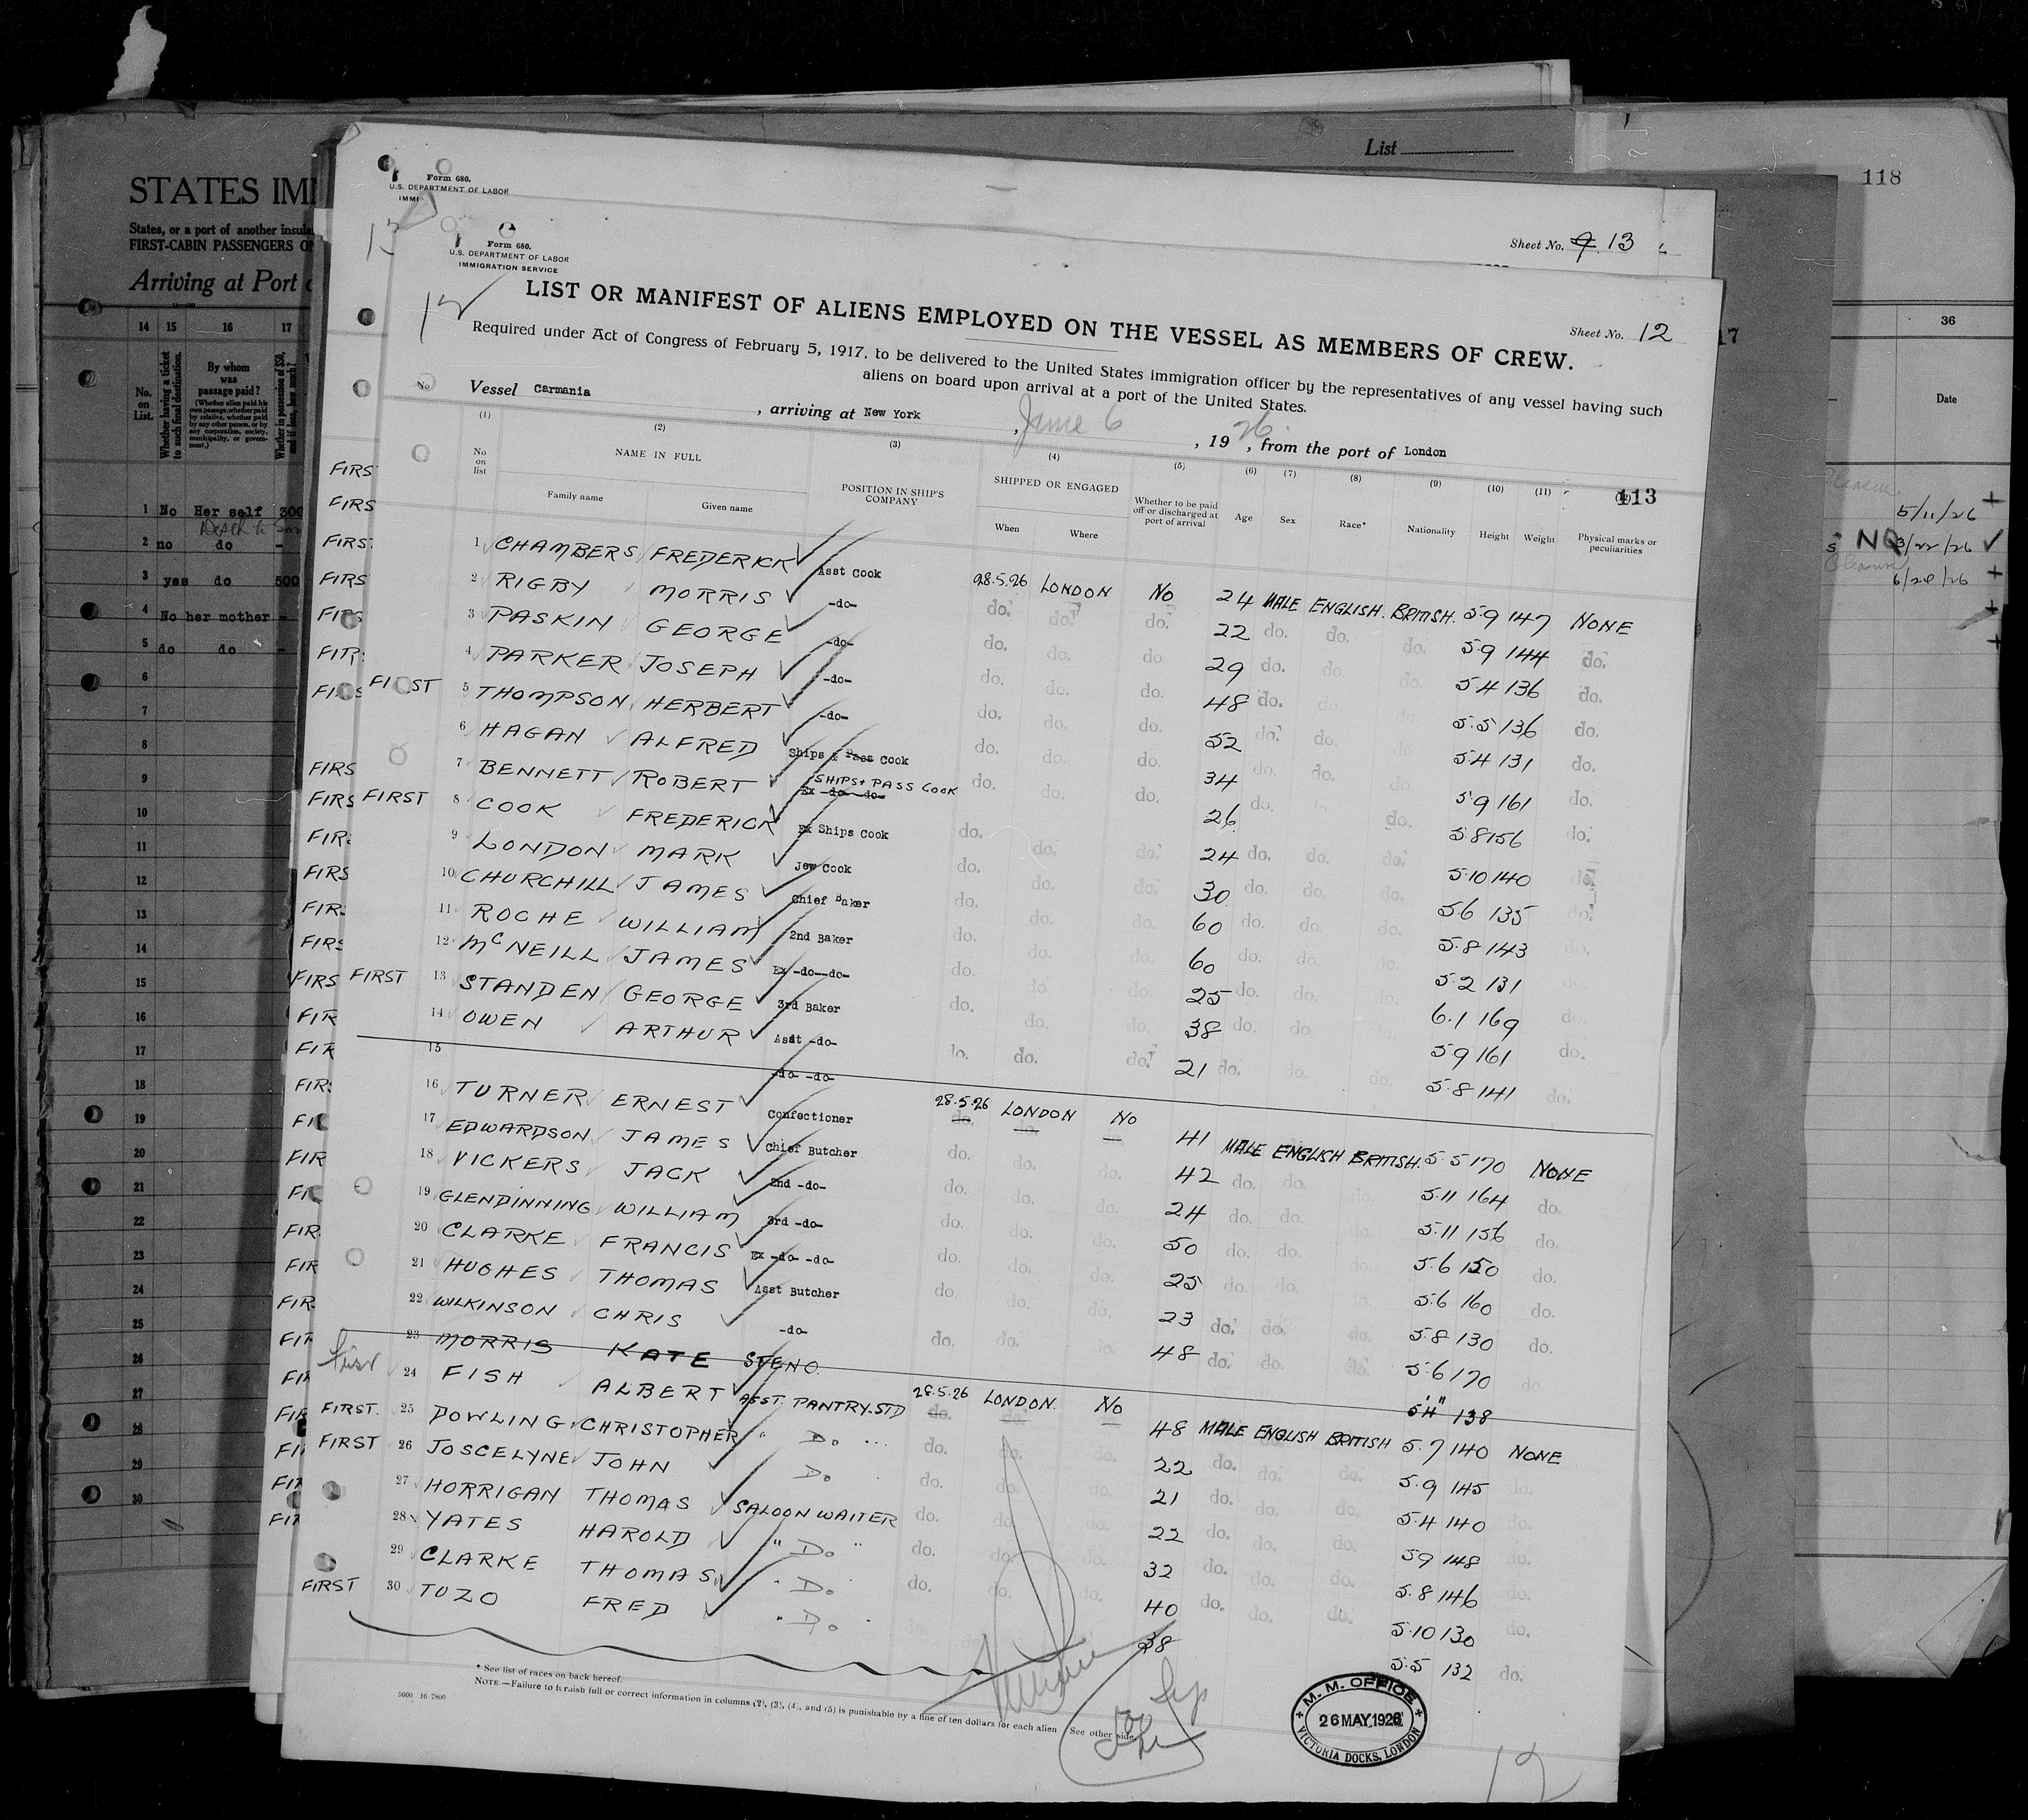 List
118
STATES IMM
States, or a port of another insula
FIRST-CABIN PASSENGERS ON
Arriving at Port o
14 15 16 17
No. on List.
Whether having a ticket to such final destination.
By whom was passage paid?
(Whether alien paid his own passage, whether paid by relative, whether paid by any other person, or by any corporation, society, municipality, or government.)
Whether in possession of $50, and if less, how much?
1 No Her self 300
2 no do -
3 yes do 500
4 No her mother -
5 do do -
6
7
8
9
10
11
12
13
14
15
16
17
18
19
20
21
22
23
24
25
26
27
28
29
30
36
Date
5/11/26 +
NQ 3/22/26 ✓
Form 680.
U.S. DEPARTMENT OF LABOR
IMMI
13
Sheet No. 9. 13
Form 680.
U.S. DEPARTMENT OF LABOR
IMMIGRATION SERVICE
12
LIST OR MANIFEST OF ALIENS EMPLOYED ON THE VESSEL AS MEMBERS OF CREW.
Sheet No. 12
Required under Act of Congress of February 5, 1917, to be delivered to the United States immigration officer by the representatives of any vessel having such
aliens on board upon arrival at a port of the United States.
Vessel Carmania, arriving at New York, June 6, 1926, from the port of London
(1) (2) (3) (4) (5) (6) (7) (8) (9) (10) (11)
113
No on list
NAME IN FULL
Family name Given name
POSITION IN SHIP'S COMPANY
SHIPPED OR ENGAGED
When Where
Whether to be paid off or discharged at port of arrival
Age Sex Race* Nationality Height Weight Physical marks or peculiarities
1 CHAMBERS FREDERICK Asst Cook 28.5.26 LONDON No 24 MALE ENGLISH. BRITISH. 5.9 147 NONE
2 RIGBY MORRIS -do- do. do. do. 22 do. do. do. 5.9 144 do.
3 PASKIN GEORGE -do- do. do. do. 29 do. do. do. 5.4 136 do.
4 PARKER JOSEPH -do- do. do. do. 48 do. do. do. 5.5 136 do.
FIRST 5 THOMPSON HERBERT -do- do. do. do. 52 do. do. do. 5.4 131 do.
6 HAGAN ALFRED Ships & Pass Cook do. do. do. 34 do. do. do. 5.9 161 do.
7 BENNETT ROBERT SHIPS + PASS COOK Ex -do- -do- do. do. do. 26 do. do. do. 5.8 156 do.
FIRST 8 COOK FREDERICK Ex Ships Cook do. do. do. 24 do. do. do. 5.10 140 do.
9 LONDON MARK Jew Cook do. do. do. 30 do. do. do. 5.6 135 do.
10 CHURCHILL JAMES Chief Baker do. do. do. 60 do. do. do. 5.8 143 do.
11 ROCHE WILLIAM 2nd Baker do. do. do. 60 do. do. do. 5.2 131 do.
12 McNEILL JAMES Ex -do--do- do. do. do. 25 do. do. do. 6.1 169 do.
FIRST 13 STANDEN GEORGE 3rd Baker do. do. do. 38 do. do. do. 5.9 161 do.
14 OWEN ARTHUR Asst -do- do. do. do. 21 do. do. do. 5.8 141 do.
15 -do- -do-
16 TURNER ERNEST Confectioner 28.5.26 do. LONDON No 41 MALE ENGLISH BRITISH. 5.5 170 NONE
17 EDWARDSON JAMES Chief Butcher do. do. do. 42 do. do. do. 5.11 164 do.
18 VICKERS JACK 2nd -do- do. do. do. 24 do. do. do. 5.11 156 do.
19 GLENDINNING WILLIAM 3rd -do- do. do. do. 50 do. do. do. 5.6 150 do.
20 CLARKE FRANCIS Ex -do- -do- do. do. do. 25 do. do. do. 5.6 160 do.
21 HUGHES THOMAS Asst Butcher do. do. do. 23 do. do. do. 5.8 130 do.
22 WILKINSON CHRIS -do- 48 do. do. do. 5.6 170 do.
23 MORRIS KATE STENO. do. do. do. 5'4" 138
First 24 FISH ALBERT ASST. PANTRY-STD 28.5.26 do. LONDON. No 48 MALE ENGLISH BRITISH 5.7 140 NONE
FIRST. 25 DOWLING CHRISTOPHER " Do do. do. do. 22 do. do. do. 5.9 145 do.
FIRST 26 JOSCELYNE JOHN Do do. do. do. 21 do. do. do. 5.4 140 do.
27 HORRIGAN THOMAS SALOON WAITER do. do. do. 22 do. do. do. 5.9 148 do.
28 YATES HAROLD " Do " do. do. do. 32 do. do. do. 5.8 146 do.
29 CLARKE THOMAS " Do do. do. do. 40 do. do. do. 5.10 130 do.
FIRST 30 TUZO FRED " Do " 38 5.5 132 do.
* See list of races on back hereof.
NOTE.—Failure to furnish full or correct information in columns (2), (3), (4), and (5) is punishable by a fine of ten dollars for each alien. See other side.
5000 16-7800
M. M. OFFICE
26 MAY.1926
VICTORIA DOCKS, LONDON
12